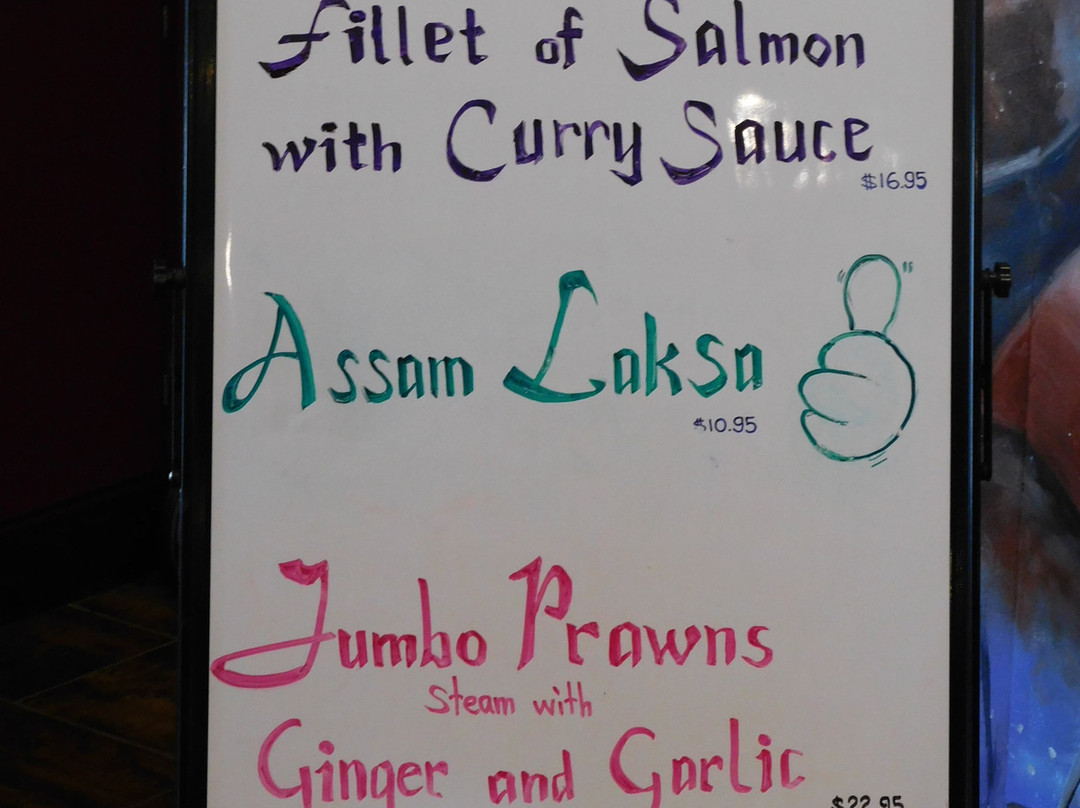 Fillet of Salmon
with Curry Sauce
$16.95
Assam Laksa
$10.95
Jumbo Prawns
Steam with
Ginger and Garlic
$22.95